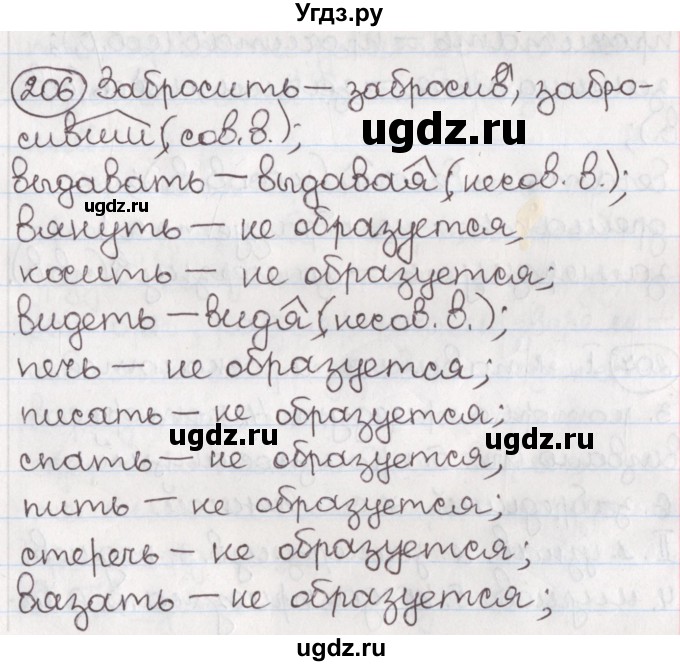 Угдз.ру
206 Забросить – забросив, забро-
сивши (сов. в.);
ugdz.ru
выдавать – выдавая (несов. в.);
ugdz.ru
вянуть – не образуется,
косить – не образуется;
видеть – видя (несов. в.);
печь – не образуется;
писать – не образуется;
ugdz.ru
ugdz.ru
спать – не образуется,
пить – не образуется;
стеречь – не образуется;
вязать – не образуется;
ugdz.ru